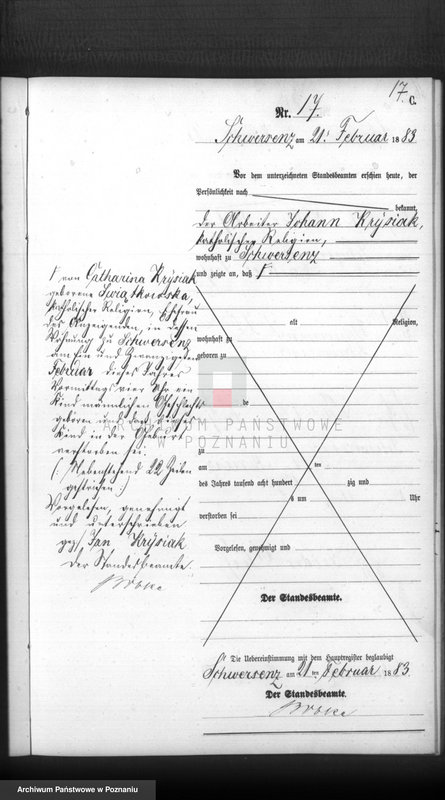 17.
C.
Nr. 17.
Schwersenz am 21. Februar 1883
Vor dem unterzeichneten Standesbeamten erschien heute, der
Persönlichkeit nach
bekannt,
der Arbeiter Johann Krÿsiak,
katholischer Religion,
wohnhaft zu Schwersenz
und zeigte an, daß
von Catharina Krÿsiak
geborene
katholischer Religion, Ehefrau
des Anzeigenden, in dessen
Wohnung zu Schwersenz
am ein und zwanzigsten
Februar dieses Jahres
Vormittags vier Uhr ein
Kind männlichen Geschlechts
geboren und daß dieses
Kind in der Geburt
verstorben sei.
(: Nebenstehend 22 Zeilen
gestrichen :)
Vorgelesen, genehmigt
und unterschrieben
gez. Jan Krÿsiak
Der Standesbeamte.
alt Religion,
wohnhaft zu
geboren zu
de
zu
am ten
des Jahres tausend acht hundert zig und
s um Uhr
verstorben sei
Vorgelesen, genehmigt und
Der Standesbeamte.
Die Uebereinstimmung mit dem Hauptregister beglaubigt
Schwersenz am 21 ten Februar 1883.
Der Standesbeamte.
ARCHIWUM PAŃSTWOWE
W POZNANIU
Archiwum Państwowe w Poznaniu